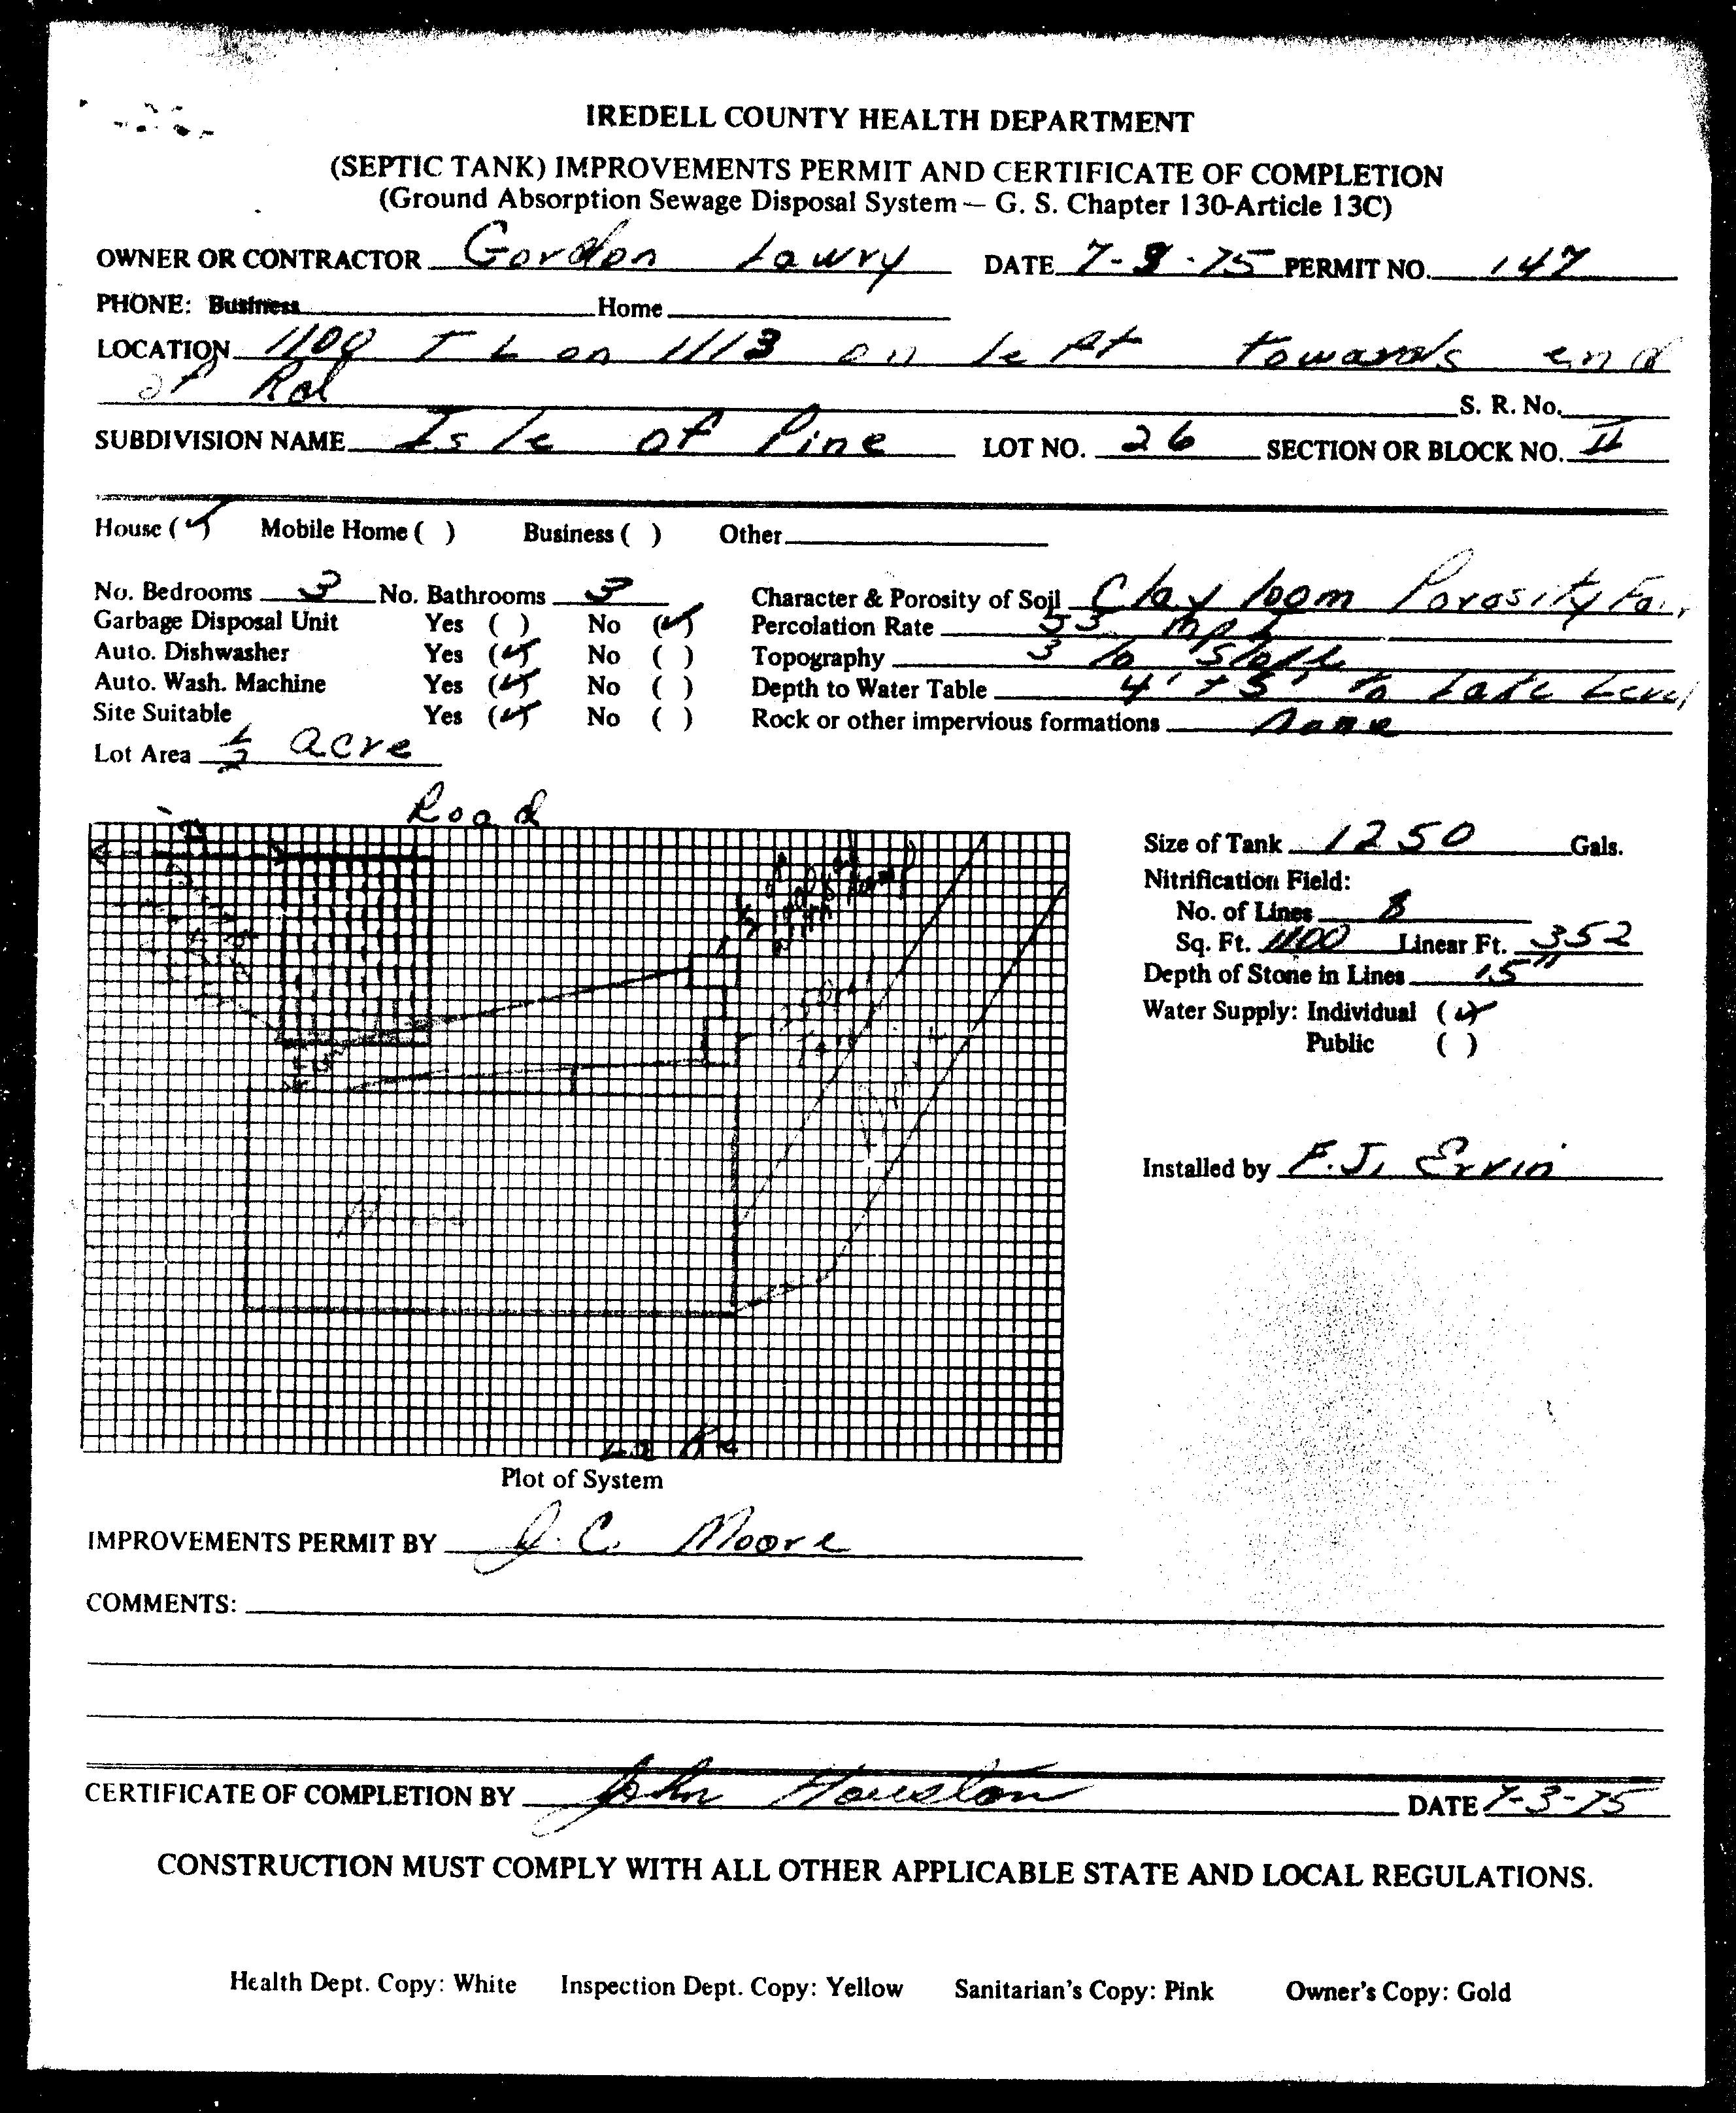 IREDELL COUNTY HEALTH DEPARTMENT
(SEPTIC TANK) IMPROVEMENTS PERMIT AND CERTIFICATE OF COMPLETION
(Ground Absorption Sewage Disposal System — G. S. Chapter 130-Article 13C)
OWNER OR CONTRACTOR Gordon Lawry DATE 7-3-75 PERMIT NO. 147
PHONE: Business Home
LOCATION 1100 T L on 1113 on left towards end
of Rd S. R. No.
SUBDIVISION NAME Isle of Pine LOT NO. 26 SECTION OR BLOCK NO. II
House (✓) Mobile Home ( ) Business ( ) Other
No. Bedrooms 3 No. Bathrooms 3 Character & Porosity of Soil Clay loom Porosity Fair
Garbage Disposal Unit Yes ( ) No (✓) Percolation Rate
Auto. Dishwasher Yes (✓) No ( ) Topography 3 % Slope
Auto. Wash. Machine Yes (✓) No ( ) Depth to Water Table 4' + 5' to Lake Level
Site Suitable Yes (✓) No ( ) Rock or other impervious formations none
Lot Area ½ acre
Road
Size of Tank 1250 Gals.
Nitrification Field:
No. of Lines 8
Sq. Ft. 1100 Linear Ft. 352
Depth of Stone in Lines 15"
Water Supply: Individual (✓)
Public ( )
Installed by F.J. Ervin
Lake
Plot of System
IMPROVEMENTS PERMIT BY J. C. Moore
COMMENTS:
CERTIFICATE OF COMPLETION BY John Houston DATE 7-3-75
CONSTRUCTION MUST COMPLY WITH ALL OTHER APPLICABLE STATE AND LOCAL REGULATIONS.
Health Dept. Copy: White Inspection Dept. Copy: Yellow Sanitarian's Copy: Pink Owner's Copy: Gold